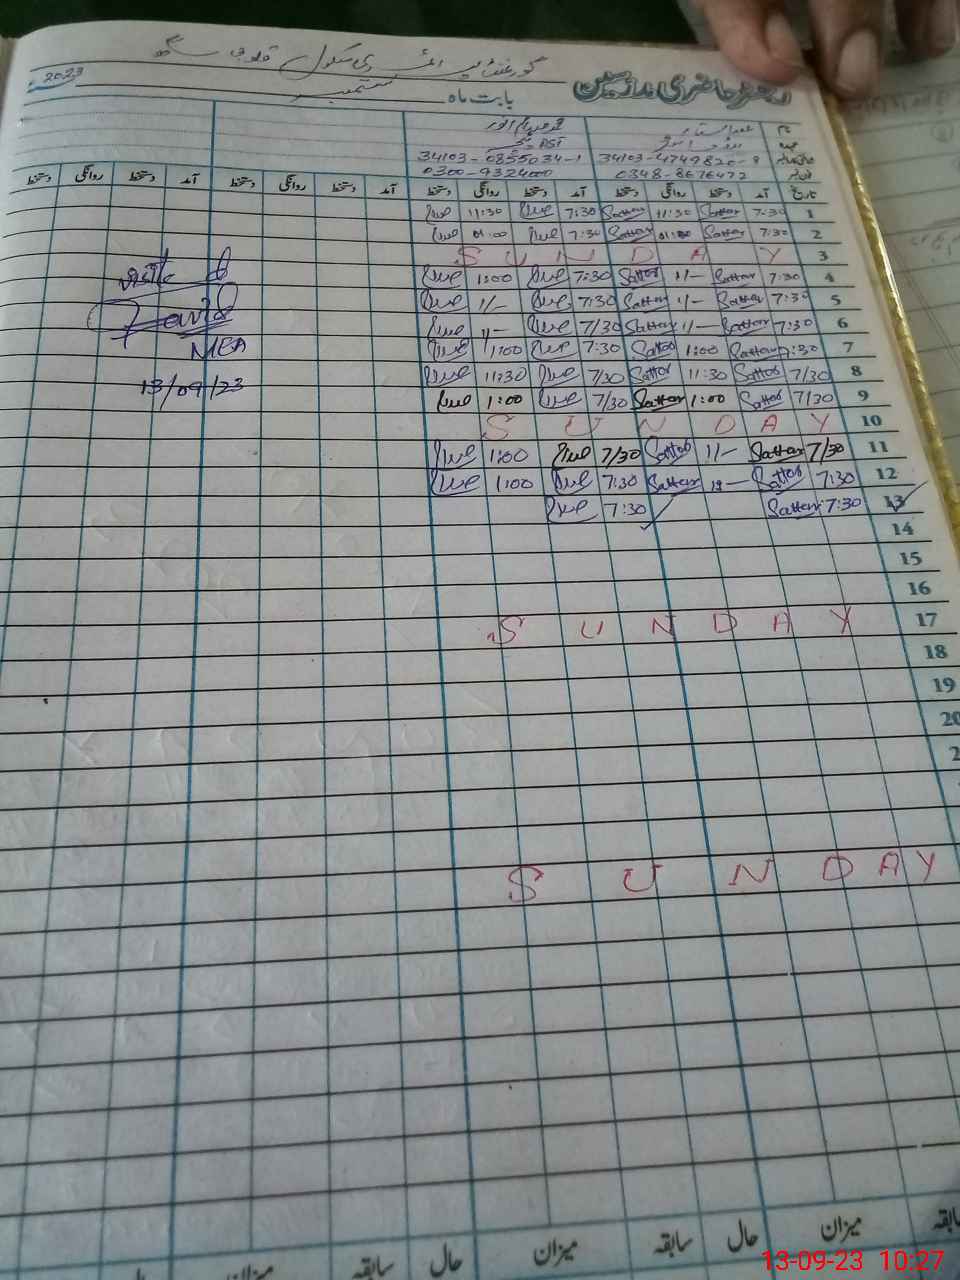 گورنمنٹ پرائمری سکول قلوبی سنگھ
دفتر حاضری مدرسین بابت ماہ ستمبر 2023
نام عبدالستار
PST
34103-4749820-9 34103-0855034-1
0348-8676472 0300-9324000
تاریخ آمد دستخط روانگی دستخط آمد دستخط روانگی دستخط آمد دستخط روانگی دستخط آمد دستخط روانگی دستخط
1 7:30 Sattar 11:30 Sattar 7:30 11:30
2 7:30 Sattar 01:00 Sattar 7:30 01:00
3 S U N D A Y
4 7:30 Sattar 1/- Sattar 7:30 1:00
5 7:30 Sattar 1/- Sattar 7:30 1/-
6 7:30 Sattar 1/- Sattar 7/30 1/-
7 7:30 Sattar 1:00 Sattar 7:30 1:00
8 7/30 Sattar 11:30 Sattar 7/30 11:30
9 7/30 Sattar 1:00 Sattar 7/30 1:00
10 S U N D A Y
11 7/30 Sattar 1/- Sattar 7/30 1:00
12 7:30 Sattar Sattar 7:30 1:00
13 7:30 Sattar 7:30
14
15
16
17 S U N D A Y
18
19
20
2
S U N D A Y
visited
MEA
13/09/23
سابقہ میزان حال سابقہ میزان حال سابقہ میزان حال
13-09-23 10:27